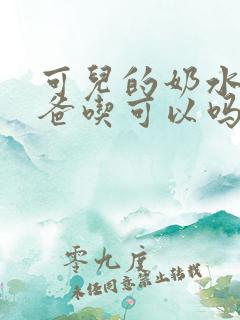 可兒的奶水
爸喫可以吗
零九度
未经同意禁止转载